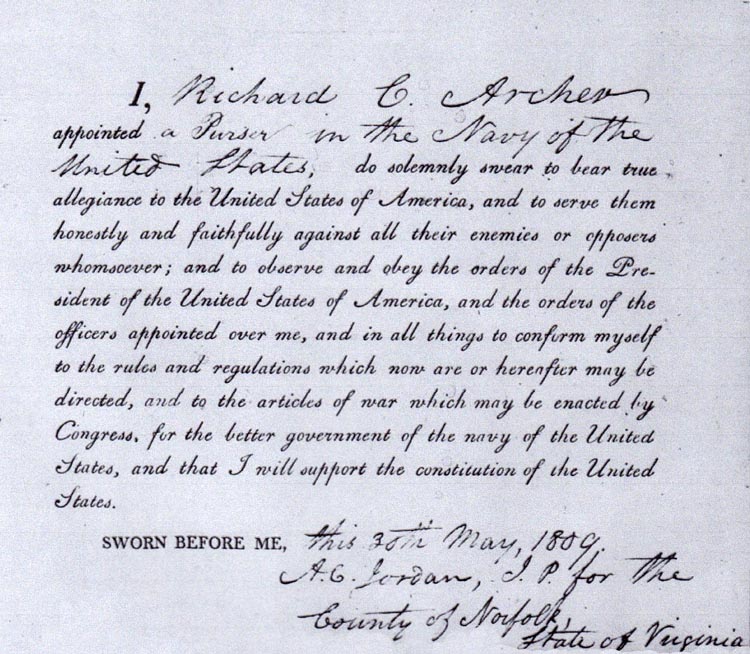 I, Richard C. Archer
appointed a Purser in the Navy of the
United States, do solemnly swear to bear true
allegiance to the United States of America, and to serve them
honestly and faithfully against all their enemies or opposers
whomsoever; and to observe and obey the orders of the Pre-
sident of the United States of America, and the orders of the
officers appointed over me, and in all things to confirm myself
to the rules and regulations which now are or hereafter may be
directed, and to the articles of war which may be enacted by
Congress, for the better government of the navy of the United
States, and that I will support the constitution of the United
States.
SWORN BEFORE ME, this 30th May, 1809.
A. C. Jordan, J. P. for the
County of Norfolk,
State of Virginia